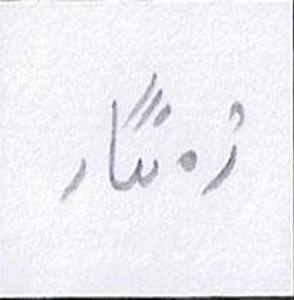 ژەنگار